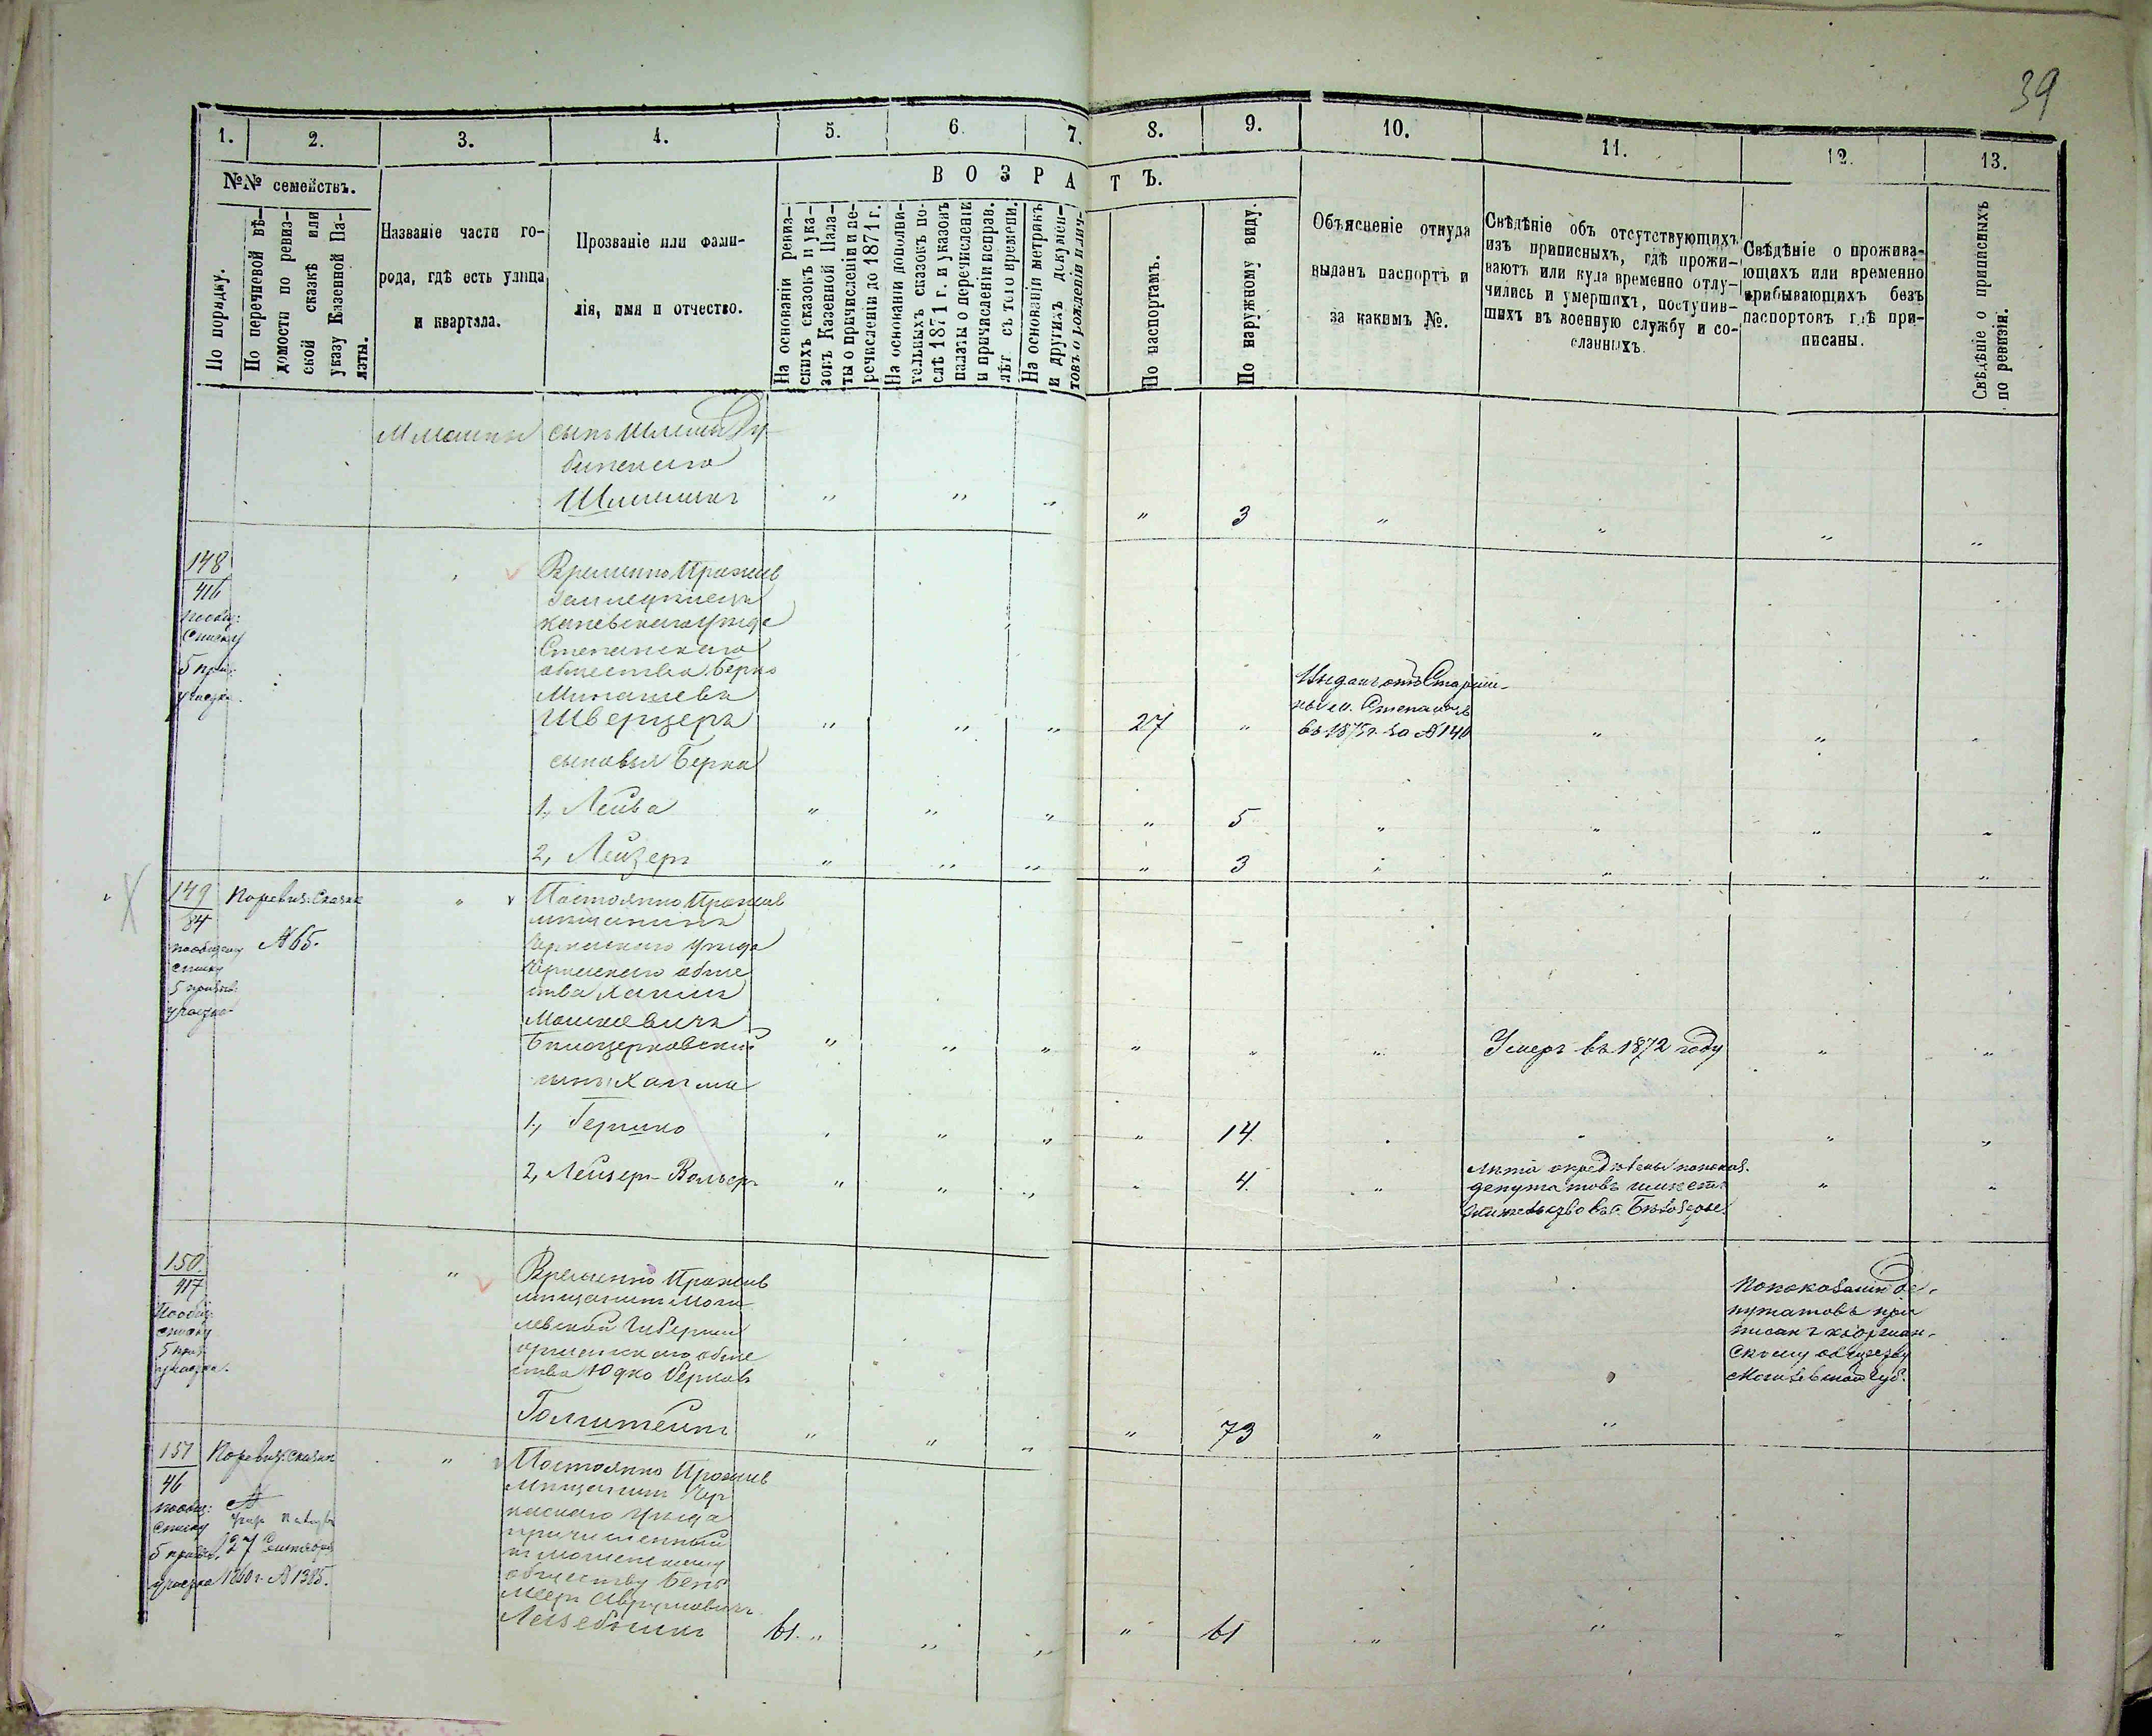 39
1. 2. 3. 4. 5. 6. 7. 8. 9. 10. 11. 12. 13.
№№ семействъ.
По порядку.
По перечневой вѣ-
домости по ревиз-
ской сказкѣ или
указу Казенной Па-
латы.
Названіе части го-
рода, гдѣ есть улица
и квартала.
Прозваніе или фами-
лія, имя и отчество.
ВОЗРАТЪ.
На основаніи ревиз-
скихъ сказокъ и ука-
зовъ Казенной Пала-
ты о причисленіи и пе-
речисленіи до 1871 г.
На основаніи дополни-
тельныхъ сказокъ по-
слѣ 1871 г. и указовъ
палаты о перечисленіи
и причисленіи неправ.
лѣт съ того времени.
На основаніи метрикъ
и другихъ докумен-
товъ о рожденіи
По паспортамъ.
По наружному виду.
Объясненіе откуда
выданъ паспортъ и
за какимъ №.
Свѣдѣніе объ отсутствующихъ
изъ приписныхъ, гдѣ прожи-
ваютъ или куда временно отлу-
чились и умершихъ, поступив-
шихъ въ военную службу и со-
сланныхъ.
Свѣдѣніе о прожива-
ющихъ или временно
прибывающихъ безъ
паспортовъ гдѣ при-
писаны.
Свѣдѣніе о приписныхъ
по ревизіи.
сынъ Шлемы Ду-
бинскаго
" " " " 3 " " " "
148
416
списку
5 приз:
участка.
Временно Прожив
Каневскаго уѣзда
Степанскаго
общества Берко
Минашевъ
Шверцеръ " " " 27 "
Выданъ отъ Старши-
ны м. Степанцовъ
въ 1875 г. за № 140 " " "
сыновья Берка
1, Лейба " " " " 5 " " " "
2, Лейзеръ " " " " 3 " " " "
149
84
по общему
списку
5 призыв.
участка
По ревиз. сказкѣ
№ 65.
" Постоянно Прожив
мѣщанинъ
Черкаскаго уѣзда
Черкаскаго обще
ства Хаимъ
Мошкевичъ
Бѣлоцерковскій " " " " " "
Умеръ въ 1872 году " "
сынъ Хаима
1, Гершко " " " " 14 " " " "
2, Лейзеръ-Вольфъ " " " " 4 "
лѣта опредѣлены показан.
депутатовъ имѣетъ
жительство въ с. Бѣлозерье " "
150.
417
По общ:
списку
5 приз.
участка.
" Временно Прожив
мѣщанинъ Моги
левской Губерніи
обще
ства Юдко Берковъ
Голштейнъ " " " " 73 " "
По показанію де-
путатовъ при
писанъ къ Оршан-
скому обществу
Могилевской Губ.
151
46
по общ:
списку
5 призыв.
участка
По ревиз. сказкѣ
№
27 Сентября
1860 г. № 1385.
" Постоянно Прожив
мѣщанинъ Чер
каскаго уѣзда
причисленный
къ мошенскому
обществу Бень
Мееръ Аврумовичъ
61. " " " " 61 " " "